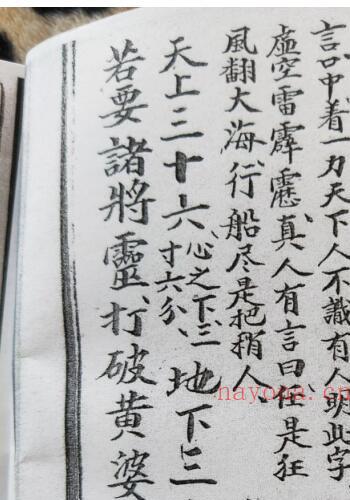 言口中着一力天下人不識有人
此字
虛空雷霹靂真人有言曰任是狂
風翻大海行船尽是把梢人
天上三十六心之下三寸六分地下三
若要諸將靈打破黃婆
nayona.cn